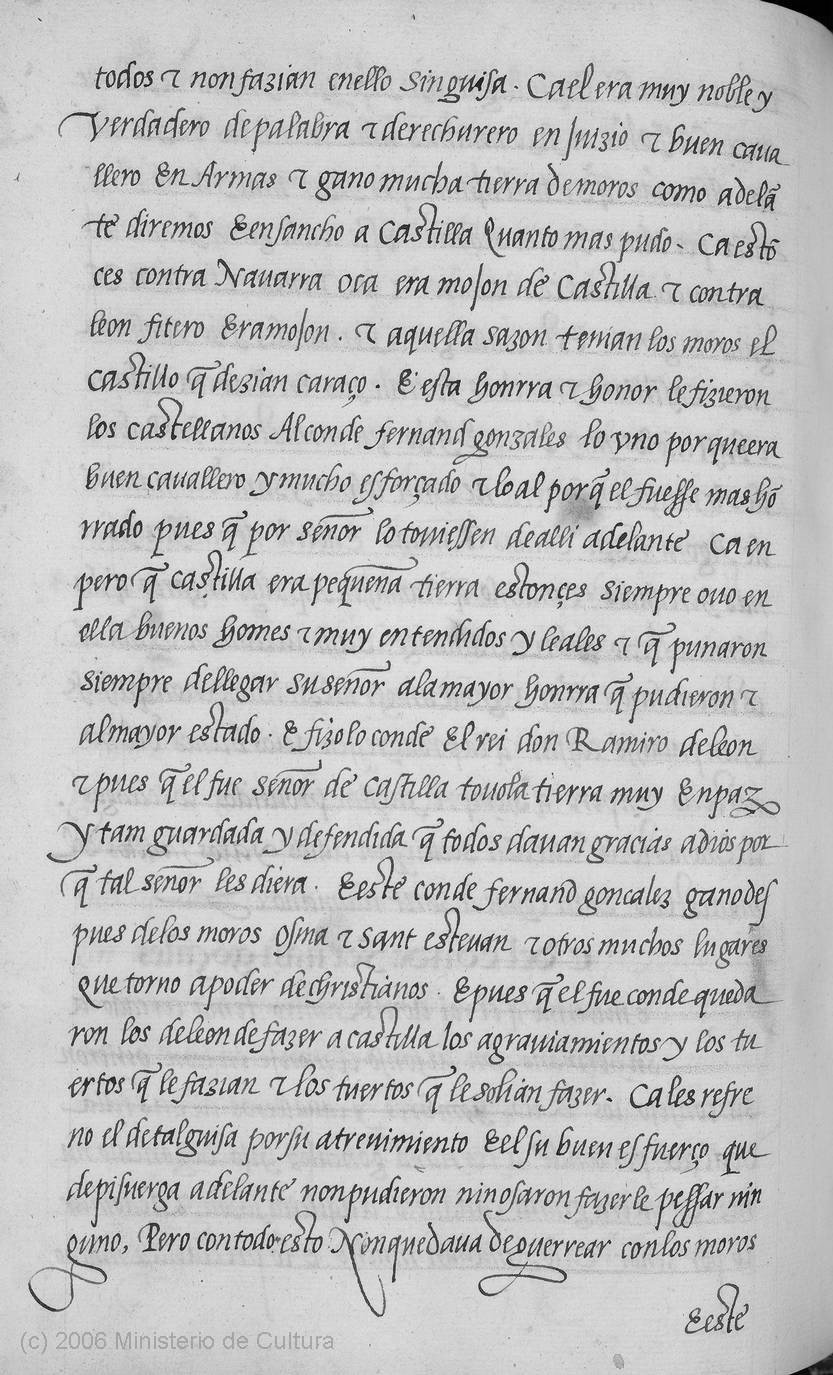 todos ⁊ non fazian enello sin guisa . Ca el era muy noble y
verdadero de palabra ⁊ derechurero en juizio ⁊ buen caua
llero En Armas ⁊ gano mucha tierra de moros como adelã
te diremos Eensancho a Castilla Quanto mas pudo . Ca estõ
ces contra Nauarra oca era mojon de Castilla ⁊ contra
leon fitero Eramojon . ⁊ aquella sazon tenian los moros el
castillo q̃ dezian caraço . E esta honrra ⁊ honor le fizieron
los castellanos Al conde fernand gonzales lo vno por que era
buen cauallero y mucho esforçado ⁊ lo al por q̃ el fuesse mas hõ
rrado pues q̃ por señor lo touiessen de alli adelante Ca en
pero q̃ castilla era pequeña tierra estonçes siempre ouo en
ella buenos homes ⁊ muy entendidos y leales ⁊ q̃ punaron
siempre de llegar su señor ala mayor honrra q̃ pudieron ⁊
al mayor estado . E fizo lo conde El rei don Ramiro de leon
⁊ pues q̃ el fue señor de castilla touo la tierra muy En paz
y tam guardada y defendida q̃ todos dauan gracias a dios por
q̃ tal señor les diera . E este conde fernand goncalez gano des
pues de los moros osma ⁊ sant esteuan ⁊ otros muchos lugares
que torno a poder de christianos . E pues q̃ el fue conde queda
ron los de leon de fazer a castilla los agrauiamientos y los tu
ertos q̃ le fazian ⁊ los tuertos q̃ le solian fazer . Ca les refre
no el de tal guisa por su atreuimiento E el su buen esfuerço que
de pisuerga adelante non pudieron nin osaron fazer le pessar nin
guno, Pero con todo esto Non quedaua de guerrear con los moros
E este
(c) 2006 Ministerio de Cultura